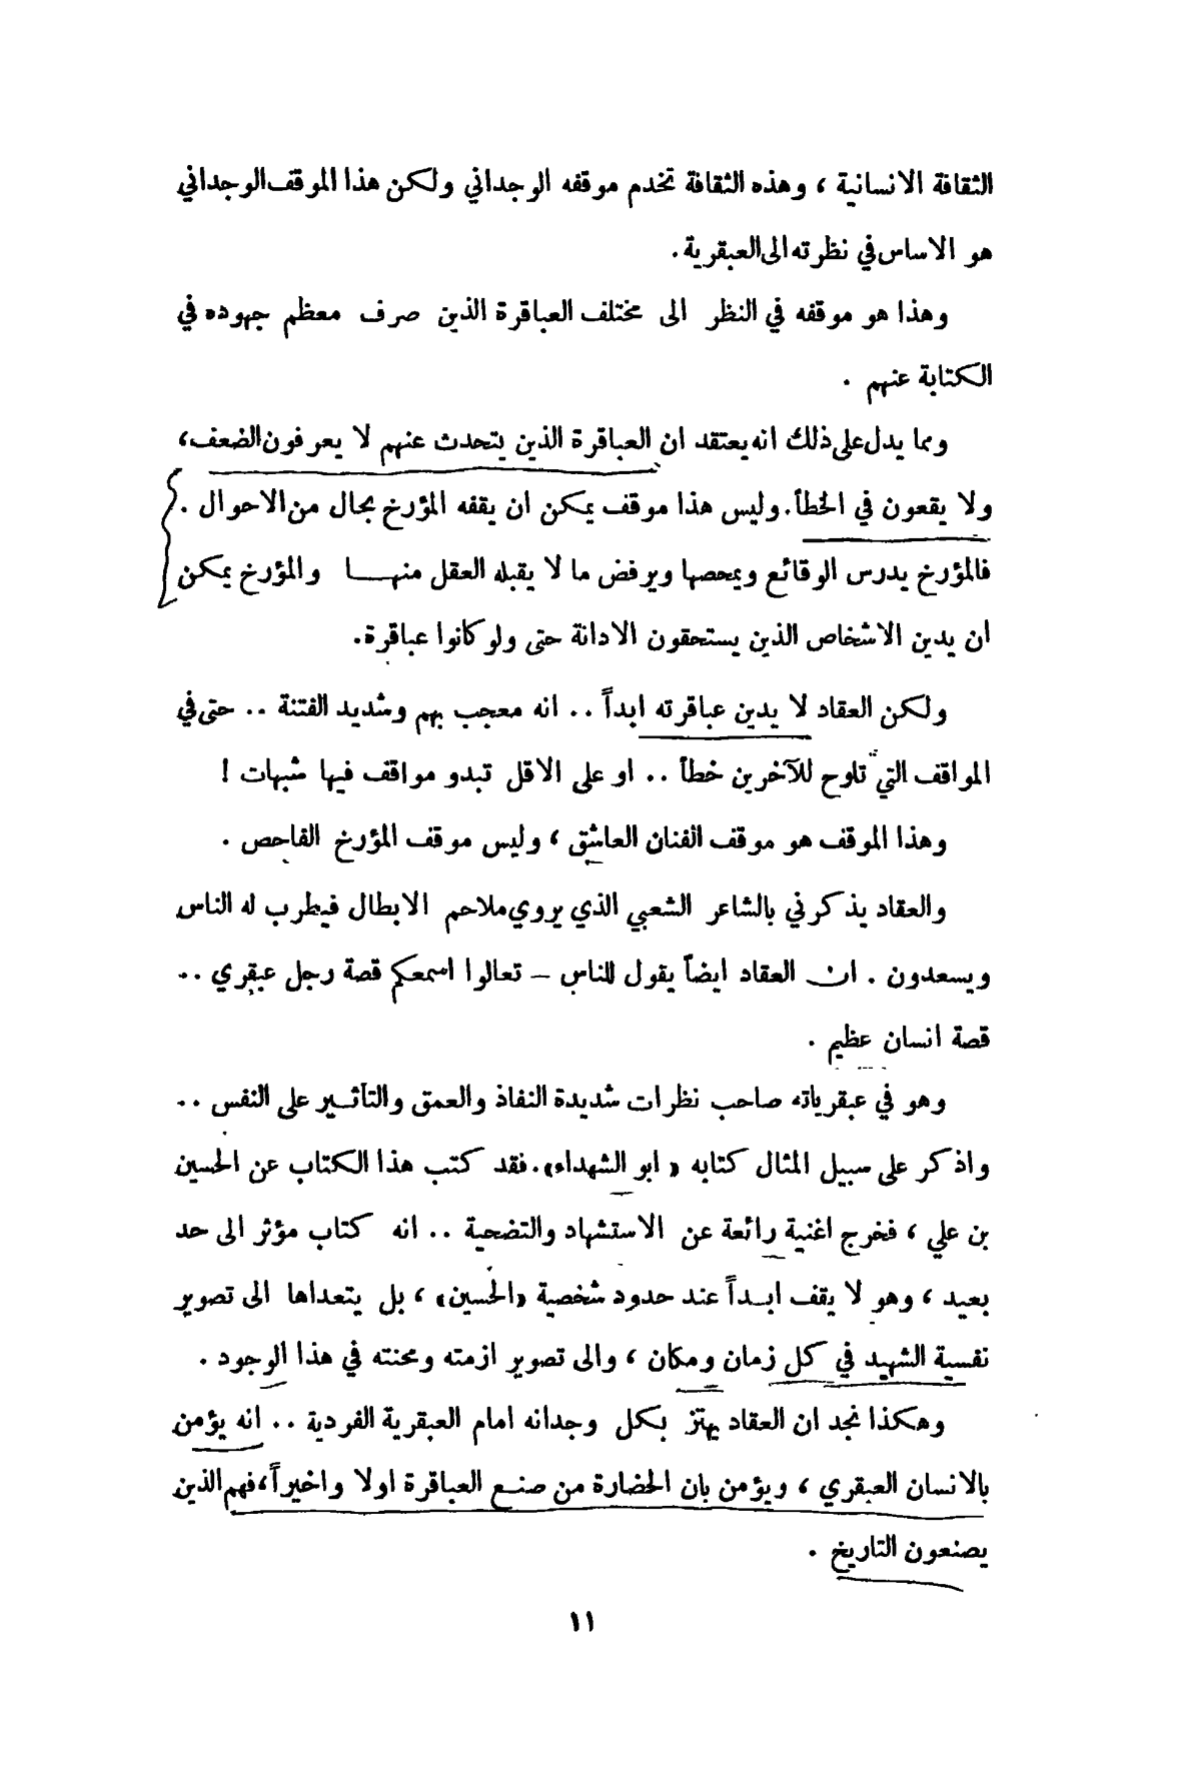 الثقافة الانسانية ، وهذه الثقافة تخدم موقفه الوجداني ولكن هذا الموقف الوجداني
هو الاساس في نظرته الى العبقرية .
وهذا هو موقفه في النظر الى مختلف العباقرة الذين صرف معظم جهوده في
الكتابة عنهم .
ومما يدل على ذلك انه يعتقد ان العباقرة الذين يتحدث عنهم لا يعرفون الضعف ،
ولا يقعون في الخطأ . وليس هذا موقف يمكن ان يقفه المؤرخ بحال من الاحوال .
فالمؤرخ يدرس الوقائع ويمحصها ويرفض ما لا يقبله العقل منهـــا والمؤرخ يمكن
ان يدين الاشخاص الذين يستحقون الادانة حتى ولو كانوا عباقرة .
ولكن العقاد لا يدين عباقرته ابداً .. انه معجب بهم وشديد الفتنة .. حتى في
المواقف التي تلوح للآخرين خطأ .. او على الاقل تبدو مواقف فيها شبهات !
وهذا الموقف هو موقف الفنان العاشق ، وليس موقف المؤرخ الفاحص .
والعقاد يذكرني بالشاعر الشعبي الذي يروي ملاحم الابطال فيطرب له الناس
ويسعدون . ان العقاد ايضاً يقول للناس – تعالوا اسمعكم قصة رجل عبقري ..
قصة انسان عظيم .
وهو في عبقرياته صاحب نظرات شديدة النفاذ والعمق والتأثـير على النفس ..
واذكر على سبيل المثال كتابه « ابو الشهداء » . فقد كتب هذا الكتاب عن الحسين
بن علي ، فخرج اغنية رائعة عن الاستشهاد والتضحية .. انه كتاب مؤثر الى حد
بعيد ، وهو لا يقف ابـداً عند حدود شخصية «الحسين» ، بل يتعداها الى تصوير
نفسية الشهيد في كل زمان ومكان ، والى تصوير ازمته ومحنته في هذا الوجود .
وهكذا نجد ان العقاد يهتز بكل وجدانه امام العبقرية الفردية .. انه يؤمن
بالانسان العبقري ، ويؤمن بان الحضارة من صنـع العباقرة اولا واخيراً ، فهم الذين
يصنعون التاريخ .
١١